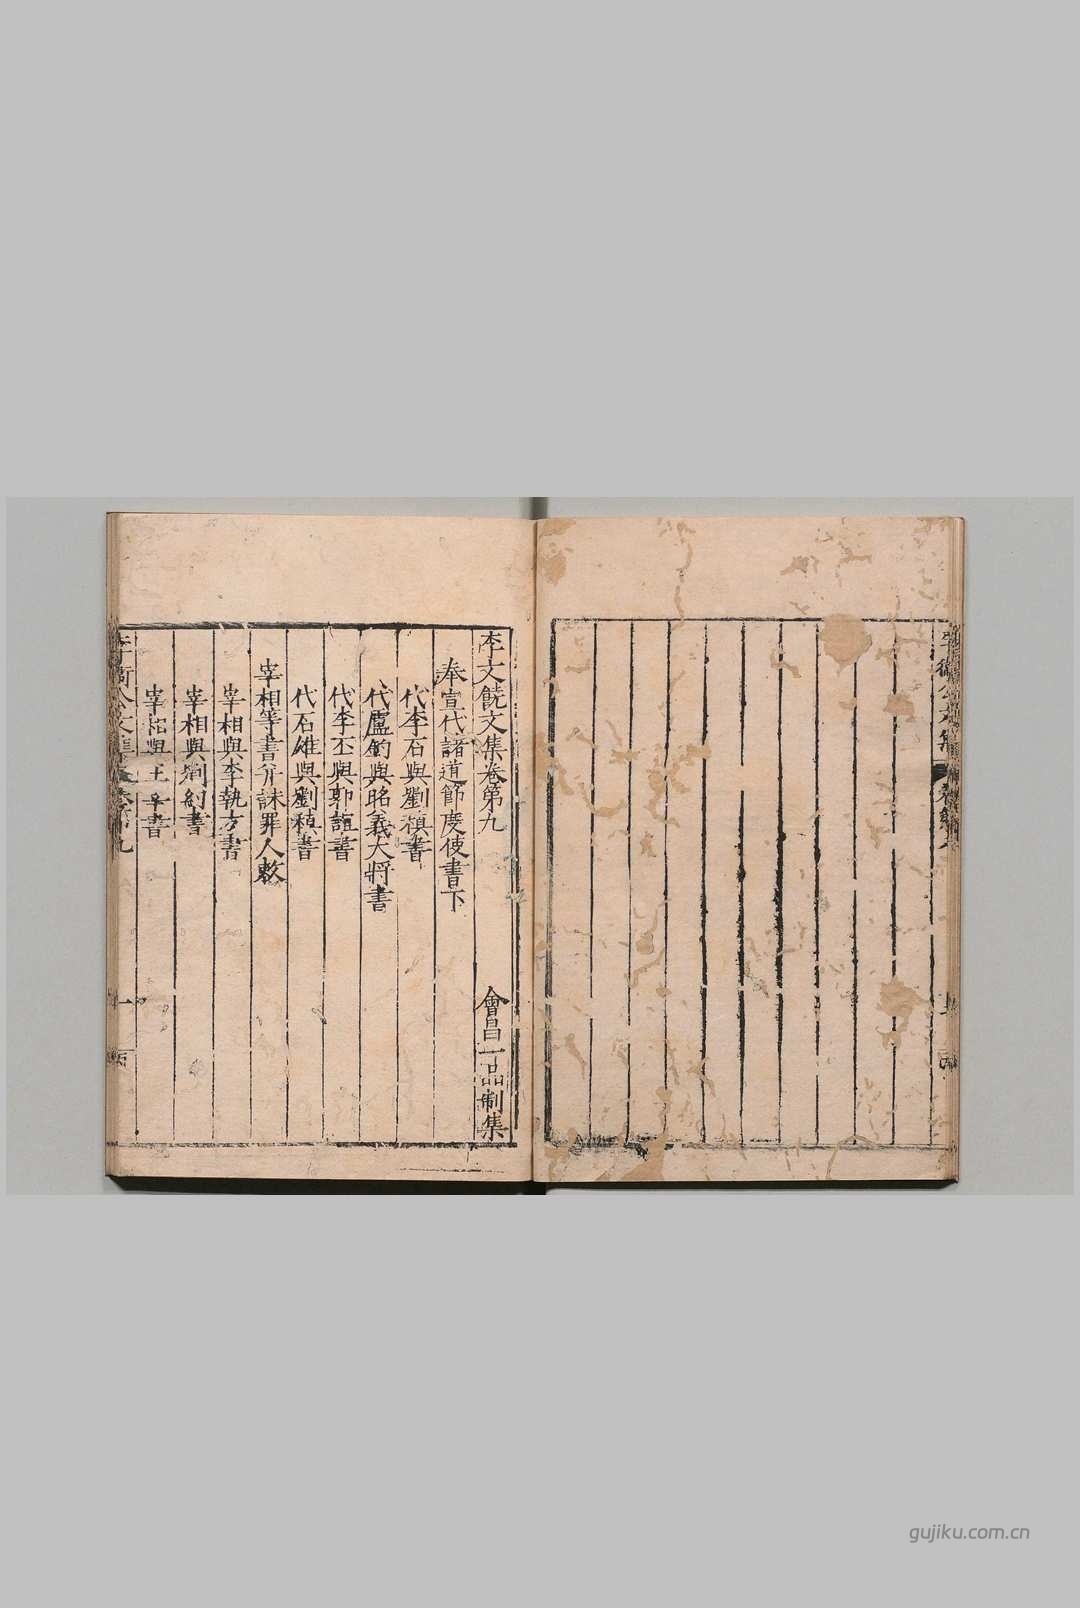 李文饒文集卷第九
會昌一品制集
奉宣代諸道節度使書下
代李石與劉稹書
代盧鈞與昭義大將書
代李丕與郭誼書
代石雄與劉稹書
宰相等書并誅罪人敕
宰相與李執方書
宰相與劉約書
宰相與王宰書
李衛公文集
卷第九
一
gujiku.com.cn